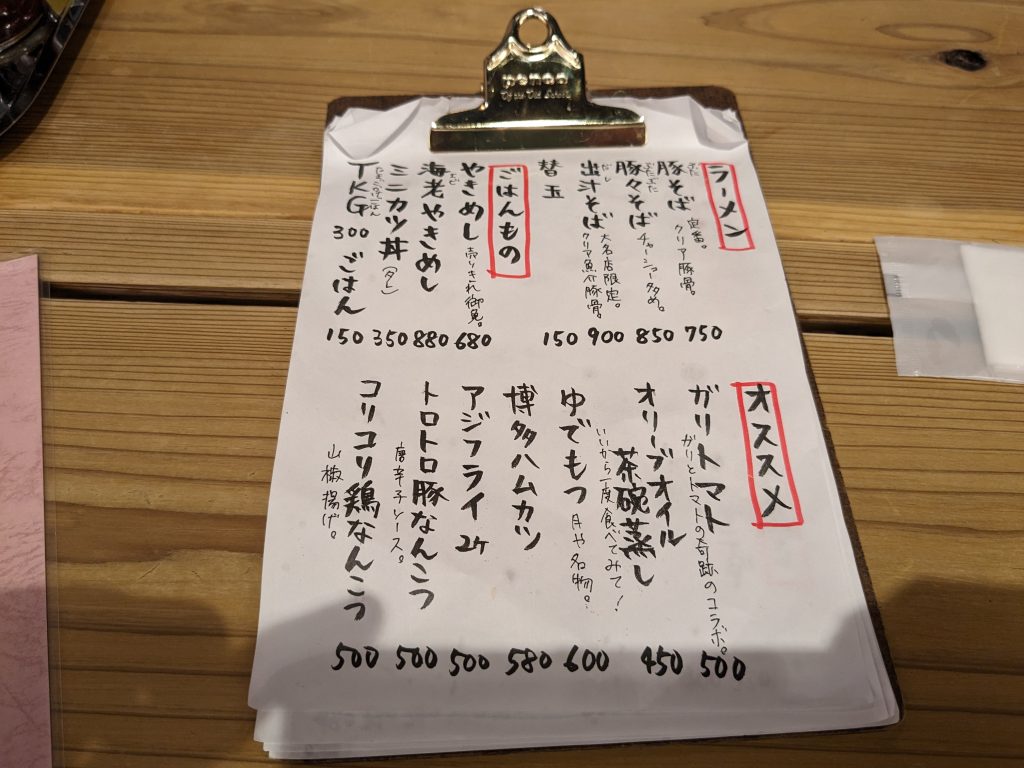 penco
ラーメン
豚そば
ぶた
定番。
クリア豚骨。
750
豚々そば
ぶたぶた
チャーシュー多め。
850
出汁そば
だし
大名店限定。
クリア魚介豚骨。
900
替玉
150
ごはんもの
やきめし
売りきれ御免。
680
海老やきめし
えび
880
ミニカツ丼
(タレ)
350
TKG 300
たまごかけごはん
ごはん
150
オススメ
ガリトマト
ガリとトマトの奇跡のコラボ。
500
オリーブオイル
茶碗蒸し
いいから一度食べてみて!
450
ゆでもつ
月や名物。
600
博多ハムカツ
580
アジフライ 2ケ
500
トロトロ豚なんこつ
唐辛子ソース。
500
コリコリ鶏なんこつ
山椒揚げ。
500